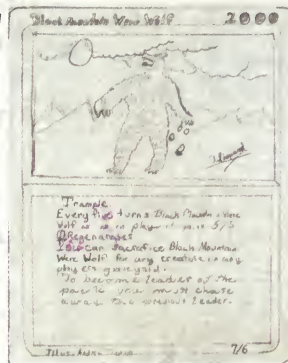 Black Mountain Were Wolf 2000
Trample
Every five turns Black Mountain Were
Wolf is in play it gains 5/5
Regenerates
You can Sacrefice Black Mountain
Were Wolf for any creature in any
players graveyard.
To become leader of the
pack you must chase
away the previous leader.
Illus.
7/6